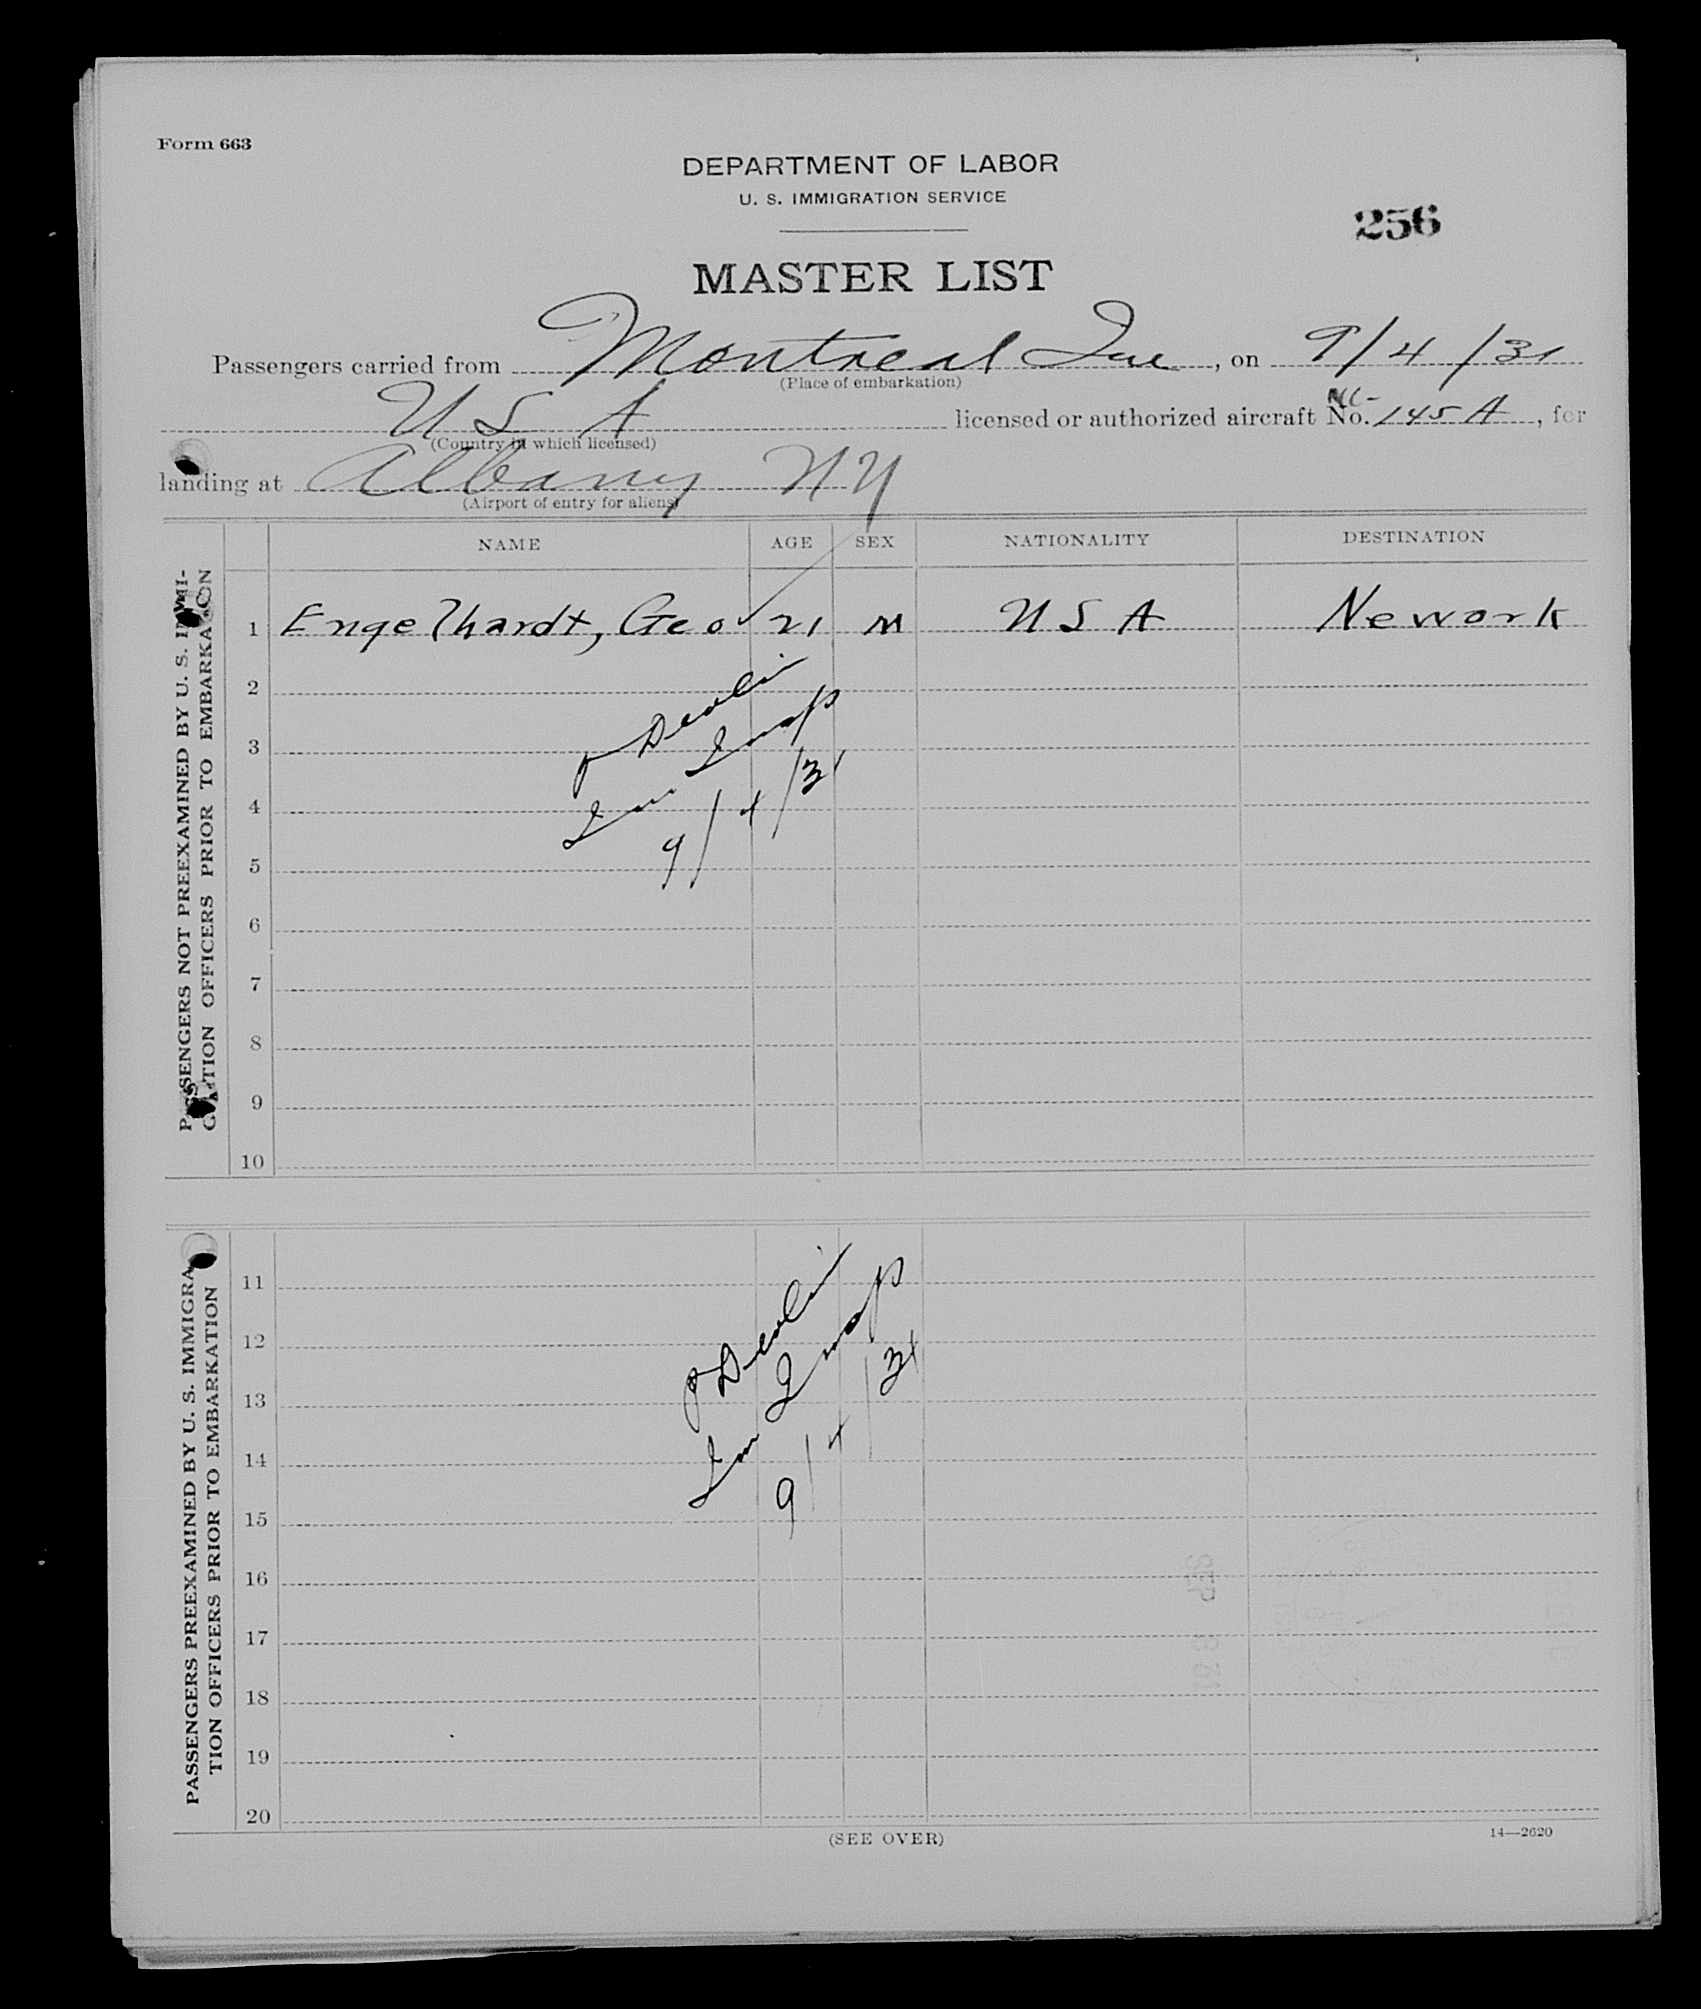 Form 663
DEPARTMENT OF LABOR
U. S. IMMIGRATION SERVICE
256
MASTER LIST
Passengers carried from Montreal Que, on 9/4/31
(Place of embarkation)
U S A licensed or authorized aircraft No. NC-145A, for
(Country in which licensed)
landing at Albany NY
(Airport of entry for aliens)
NAME AGE SEX NATIONALITY DESTINATION
PASSENGERS NOT PREEXAMINED BY U. S. IMMI-
GRATION OFFICERS PRIOR TO EMBARKATION
1 Engelhardt, Geo 21 M USA Newark
2
3
4
5
6
7
8
9
10
P Devlin
Im Insp
9/4/31
PASSENGERS PREEXAMINED BY U. S. IMMIGRA
TION OFFICERS PRIOR TO EMBARKATION
11
12
13
14
15
16
17
18
19
20
P Devlin
Im Insp
9/4/31
(SEE OVER)
14—2620